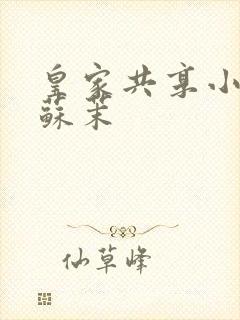 皇家共享小
蘇茉
仙草峰